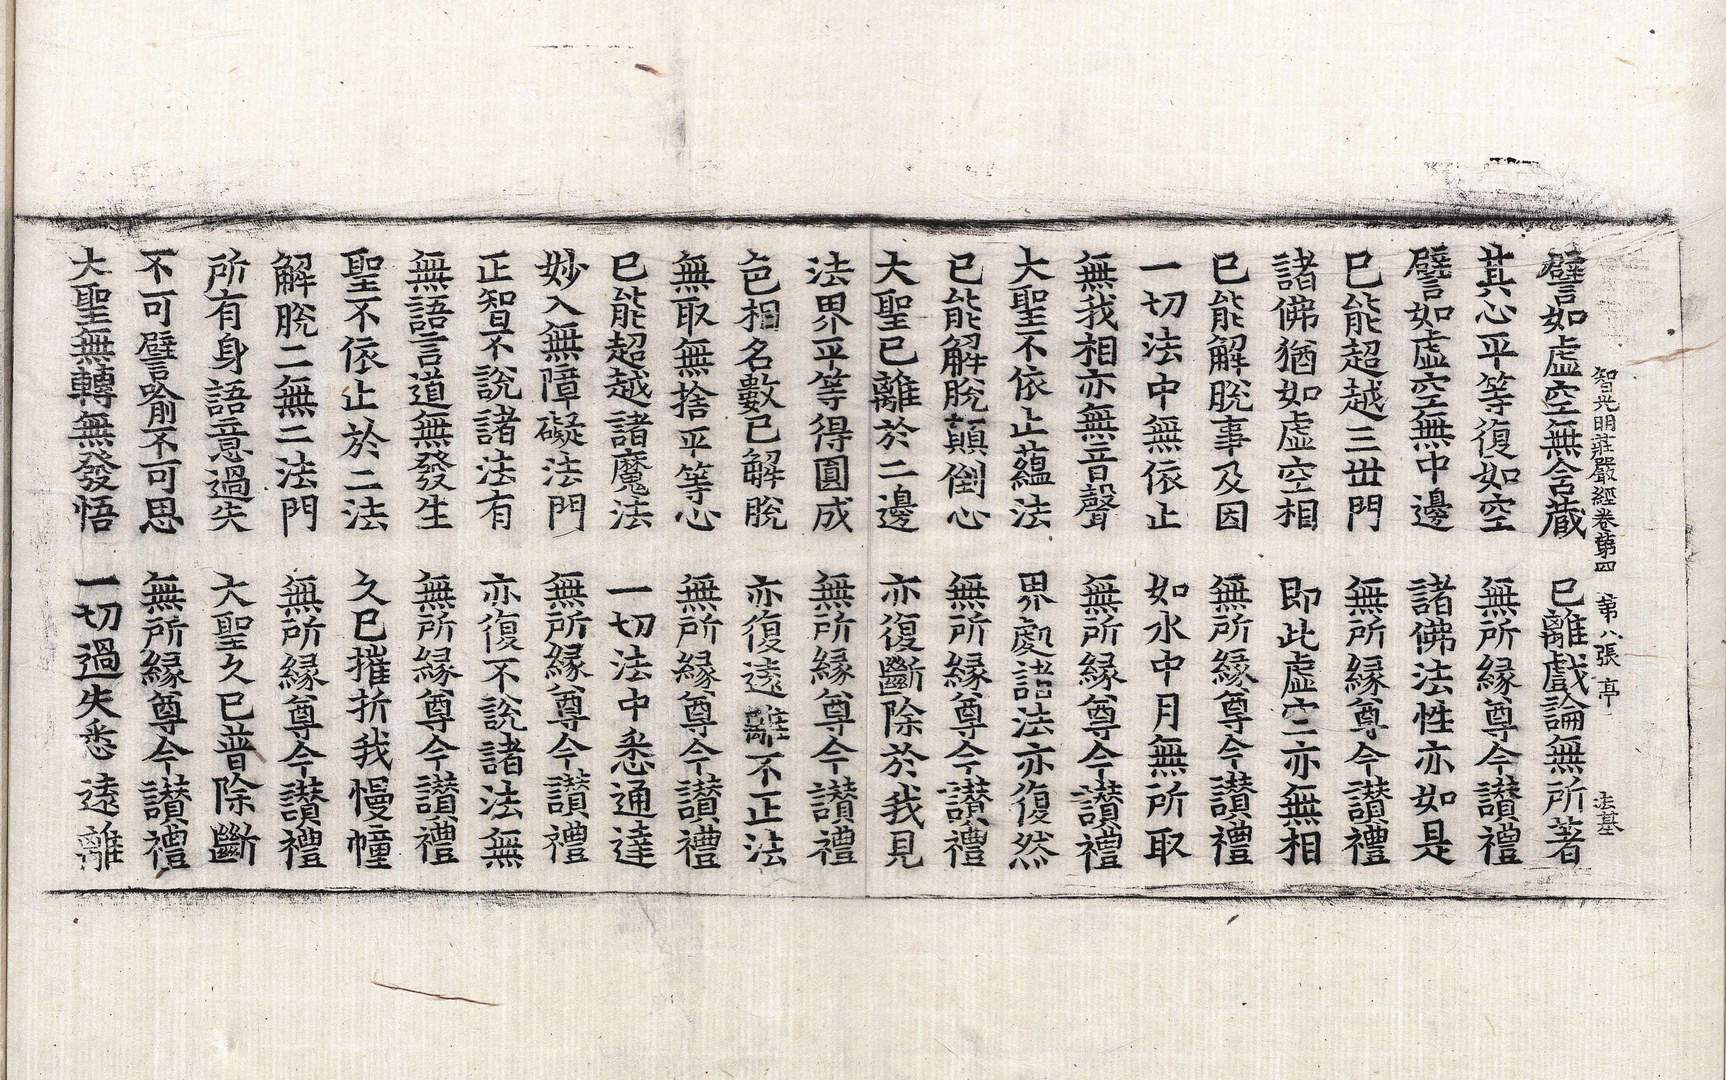 智光明莊嚴經卷第四 第八張 亭 法基
譬如虛空無含藏 已離戲論無所著
其心平等復如空 無所緣尊今讚禮
譬如虛空無中邊 諸佛法性亦如是
已能超越三世門 無所緣尊今讚禮
諸佛猶如虛空相 即此虛空亦無相
已能解脫事及因 無所緣尊今讚禮
一切法中無依止 如水中月無所取
無我相亦無音聲 無所緣尊今讚禮
大聖不依止蘊法 界處諸法亦復然
已能解脫顛倒心 無所緣尊今讚禮
大聖已離於二邊 亦復斷除於我見
法界平等得圓成 無所緣尊今讚禮
色相名數已解脫 亦復遠離不正法
無取無捨平等心 無所緣尊今讚禮
已能超越諸魔法 一切法中悉通達
妙入無障礙法門 無所緣尊今讚禮
正智不說諸法有 亦復不說諸法無
無語言道無發生 無所緣尊今讚禮
聖不依止於二法 久已摧折我慢幢
解脫二無二法門 無所緣尊今讚禮
所有身語意過失 大聖久已普除斷
不可譬喻不可思 無所緣尊今讚禮
大聖無轉無發悟 一切過失悉遠離